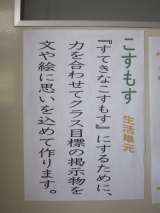 こすもす
生活単元
『すてきなこすもす』にするために、
力を合わせてクラス目標の掲示物を
文や絵に思いを込めて作ります。